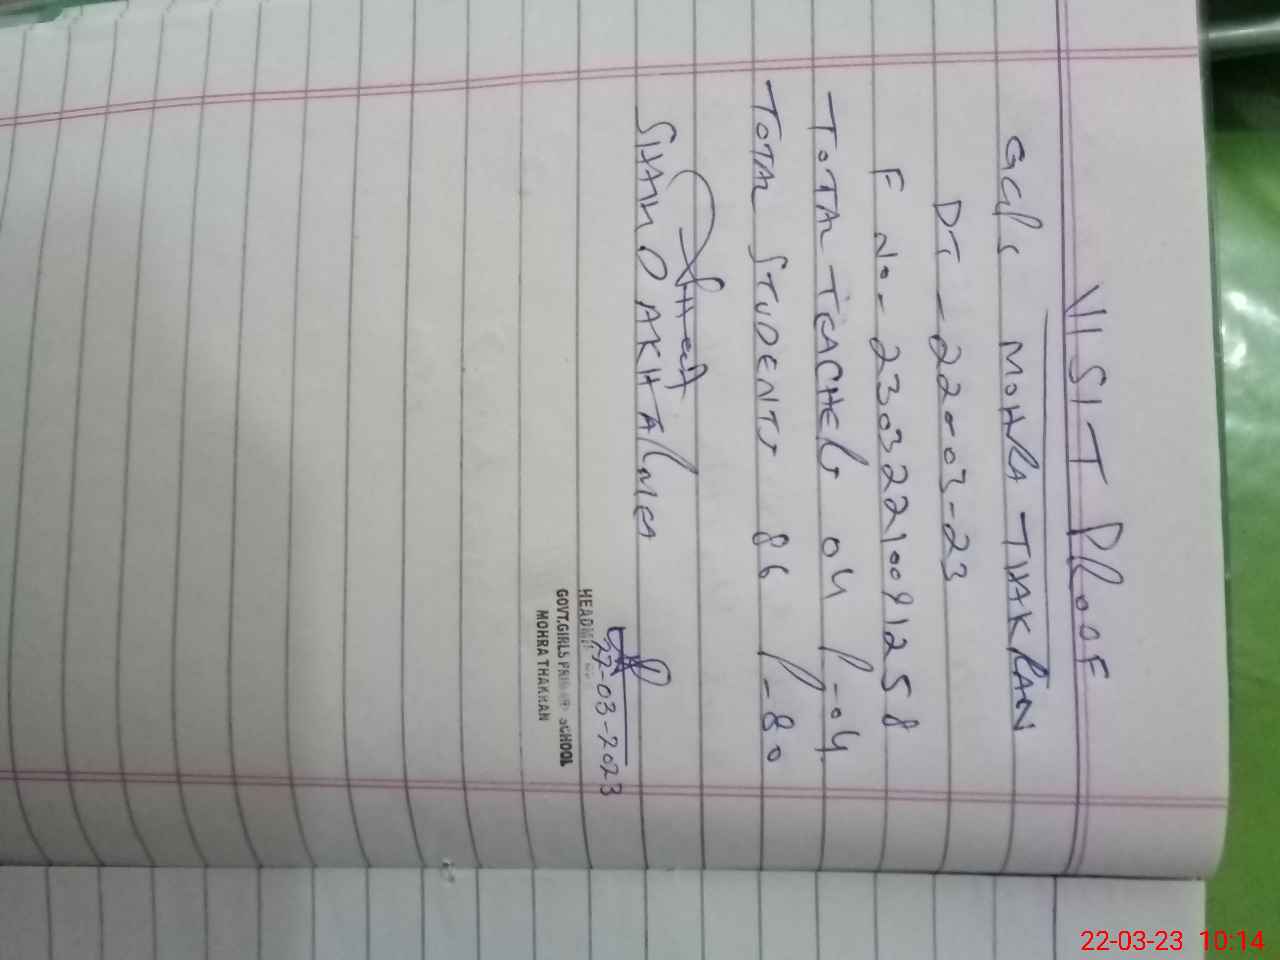 VISIT PROOF
GGPS MOHRA THAKRAN
DT - 22-03-23
F No- 23032210091258
TOTAL TEACHERS 04 P-04
TOTAL STUDENTS 86 P-80
22-03-2023
GOVT.GIRLS PRIMARY SCHOOL
MOHRA THAKRAN
22-03-23 10:14